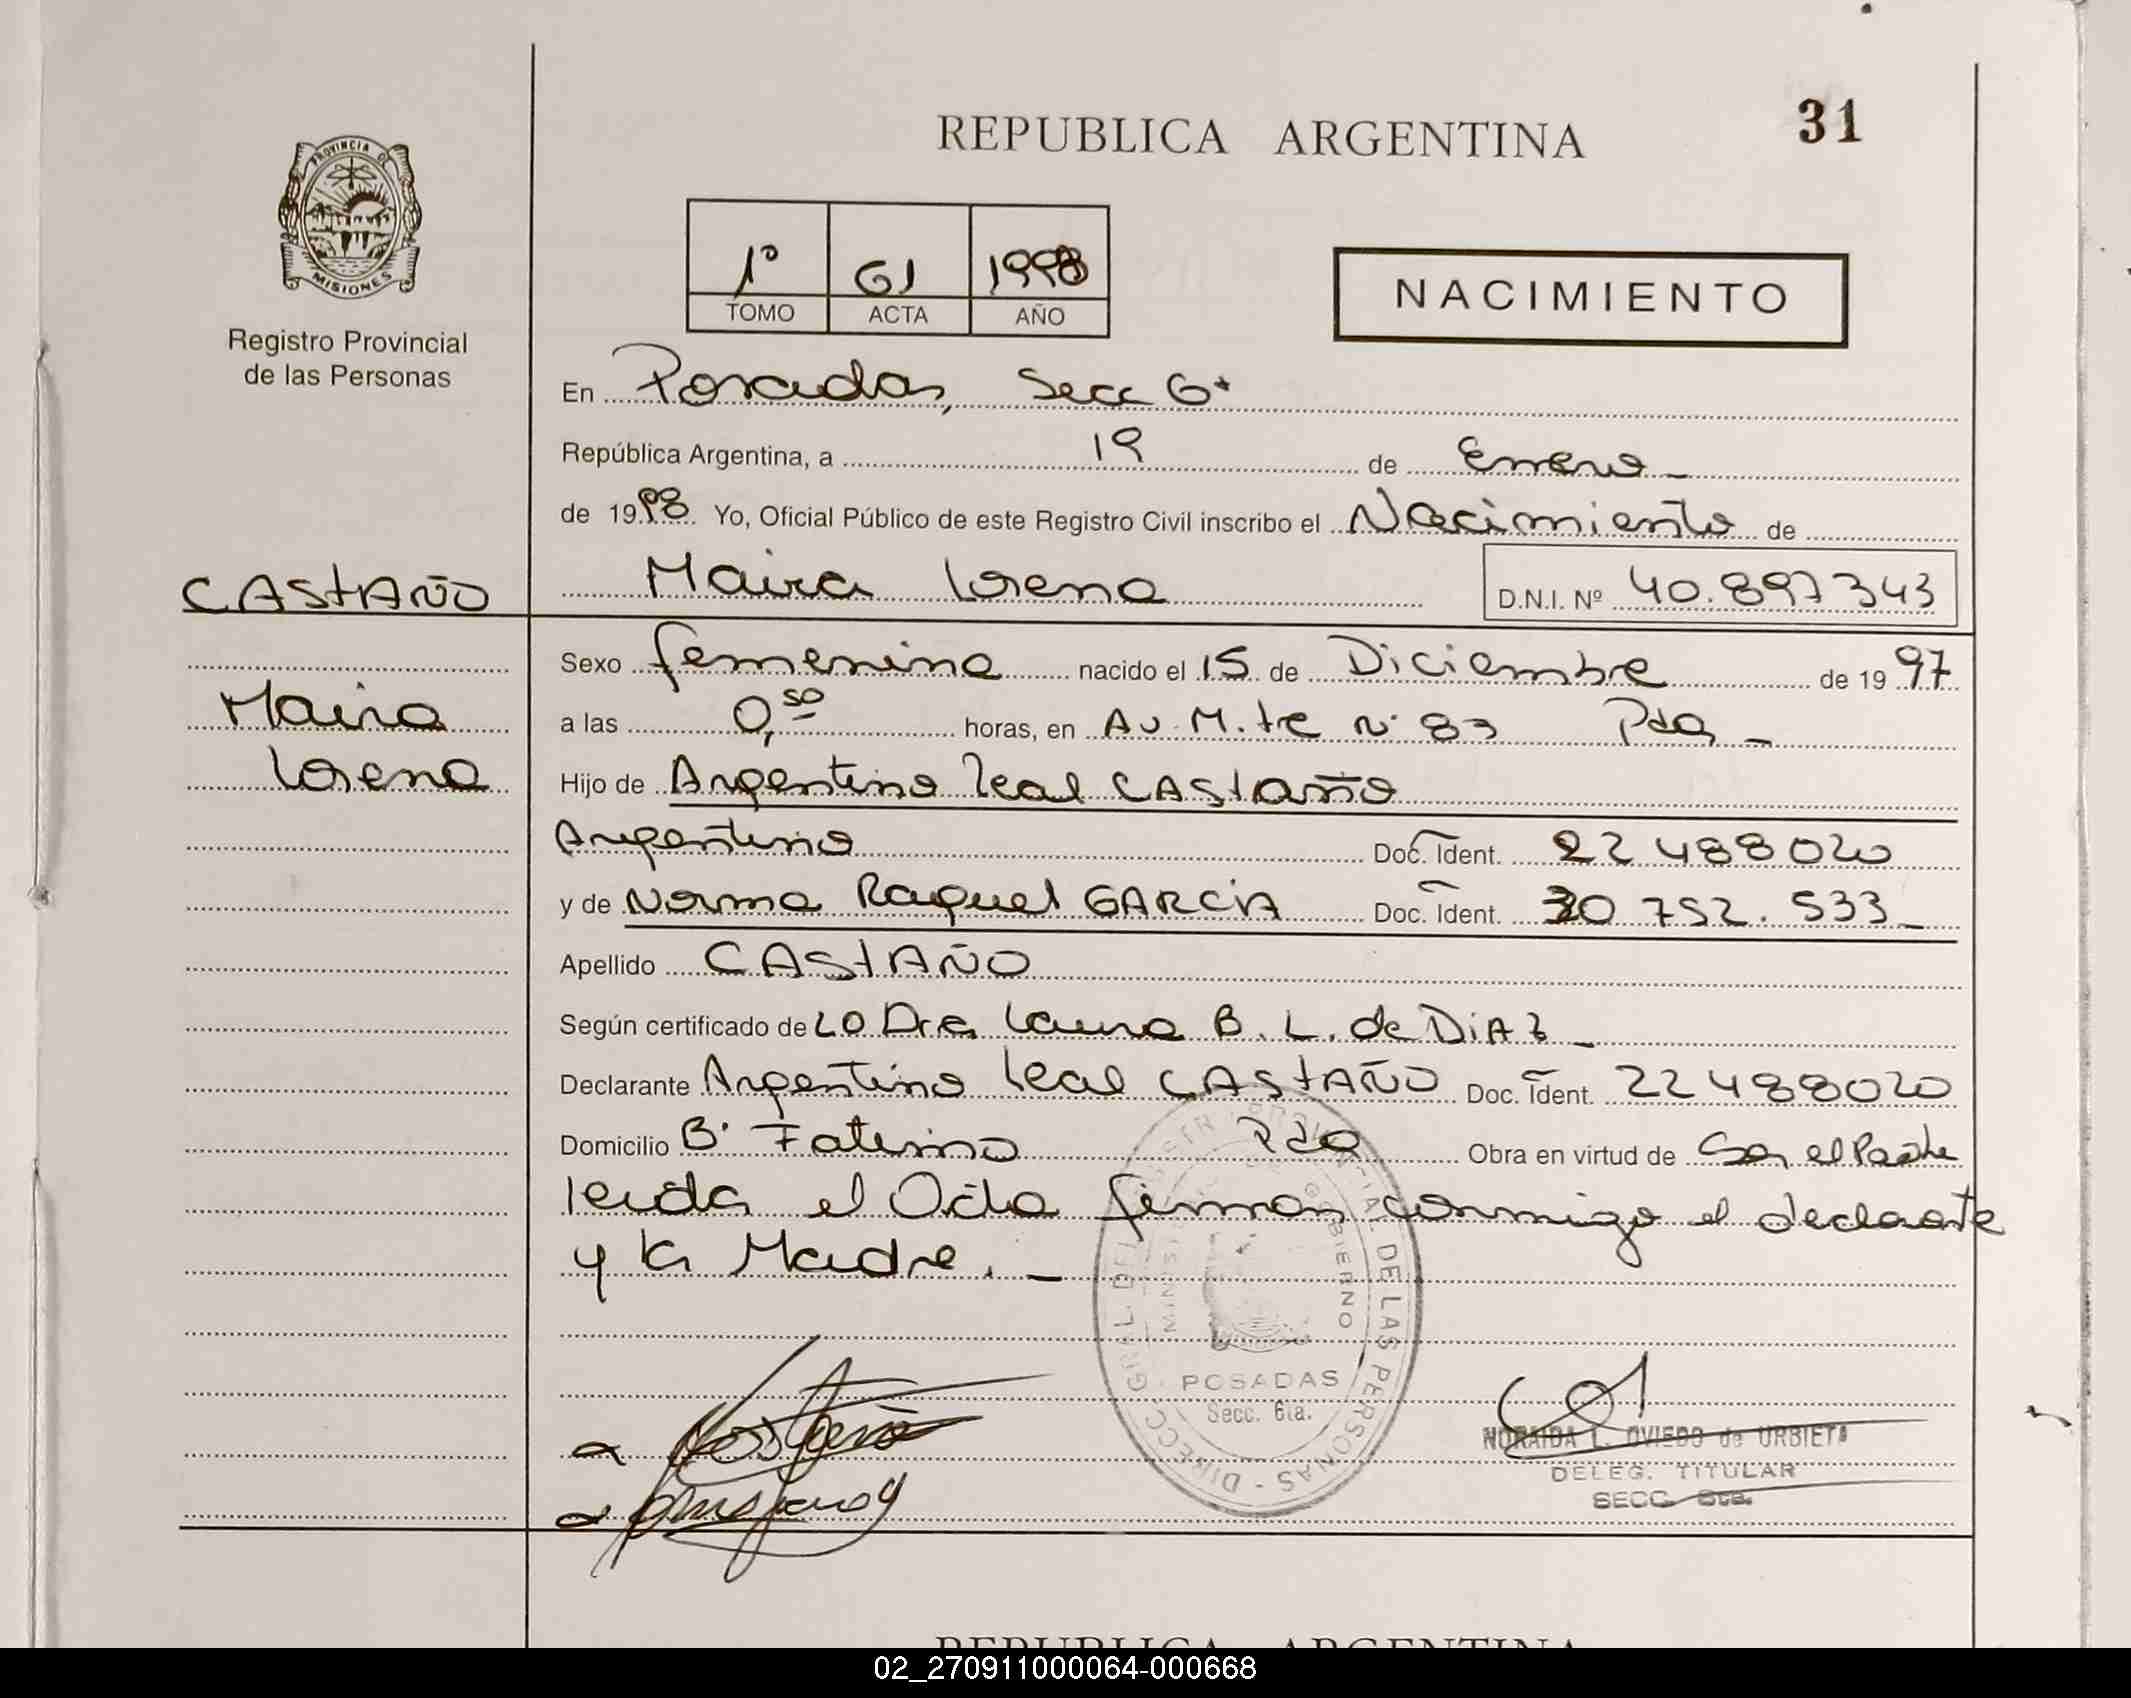 REPUBLICA ARGENTINA
31
PROVINCIA DE
MISIONES
Registro Provincial
de las Personas
1º 61 1998
TOMO ACTA AÑO
NACIMIENTO
En Posadas, Secc 6ª
República Argentina, a 19 de Enero
de 1998 Yo, Oficial Público de este Registro Civil inscribo el Nacimiento de
CASTAÑO
Maira Lorena D.N.I. Nº 40.897343
Maira
Lorena
Sexo femenino nacido el 15 de Diciembre de 1997
a las 0,50 horas, en Av. M.tre Nº 83 Pdas
Hijo de Argentino Leal CASTAÑO
Argentino Doc. Ident. 22488020
y de Norma Raquel GARCIA Doc. Ident. 30752.533
Apellido CASTAÑO
Según certificado de La Dra Laura B. L. de DIAZ
Declarante Argentino Leal CASTAÑO Doc. Ident. 22488020
Domicilio Bº Fatima Pdas Obra en virtud de Ser el Padre
leida el Acta firman conmigo el declarante
y la Madre.
DIRECC. GRAL. DEL REGISTR PROVINCIAL DE LAS PERSONAS
GOBIERNO
POSADAS
Secc. 6ta.
NORAIDA L. OVIEDO de URBIETA
DELEG. TITULAR
SECC. 6ta.
REPUBLICA ARGENTINA
02_270911000064-000668